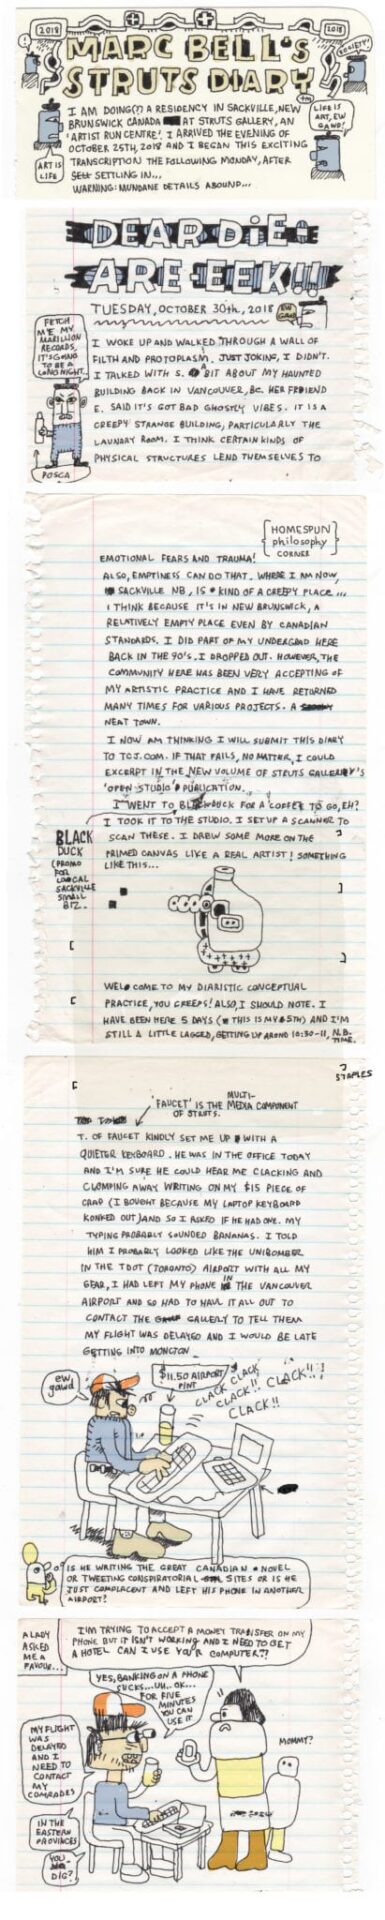 2018
2018
MARC BELL'S
STRUTS DIARY
SOCIETY!
I AM DOING(?) A RESIDENCY IN SACKVILLE, NEW
BRUNSWICK CANADA AT STRUTS GALLERY, AN
'ARTIST RUN CENTRE'. I ARRIVED THE EVENING OF
OCTOBER 25TH, 2018 AND I BEGAN THIS EXCITING
TRANSCRIPTION THE FOLLOWING MONDAY, AFTER
SETTLING IN...
WARNING: MUNDANE DETAILS ABOUND...
ART IS
LIFE
LIFE IS
ART, EW
GAWD!
DEAR DIE-
ARE-EEK!!
TUESDAY, OCTOBER 30th, 2018
EW
GAWD
FETCH
ME MY
MARILLION
RECORDS,
IT'S GOING
TO BE A
LONG NIGHT..
POSCA
I WOKE UP AND WALKED THROUGH A WALL OF
FILTH AND PROTOPLASM. JUST JOKING, I DIDN'T.
I TALKED WITH S. A BIT ABOUT MY HAUNTED
BUILDING BACK IN VANCOUVER, BC. HER FRIEND
E. SAID IT'S GOT BAD GHOSTLY VIBES. IT IS A
CREEPY STRANGE BUILDING, PARTICULARLY THE
LAUNDRY ROOM. I THINK CERTAIN KINDS OF
PHYSICAL STRUCTURES LEND THEMSELVES TO
HOMESPUN
philosophy
CORNER
EMOTIONAL FEARS AND TRAUMA!
ALSO, EMPTINESS CAN DO THAT. WHERE I AM NOW,
SACKVILLE NB, IS KIND OF A CREEPY PLACE...
I THINK BECAUSE IT'S IN NEW BRUNSWICK, A
RELATIVELY EMPTY PLACE EVEN BY CANADIAN
STANDARDS. I DID PART OF MY UNDERGRAD HERE
BACK IN THE 90'S. I DROPPED OUT. HOWEVER, THE
COMMUNITY HERE HAS BEEN VERY ACCEPTING OF
MY ARTISTIC PRACTICE AND I HAVE RETURNED
MANY TIMES FOR VARIOUS PROJECTS. A
NEAT TOWN.
I NOW AM THINKING I WILL SUBMIT THIS DIARY
TO TCJ.COM. IF THAT FAILS, NO MATTER, I COULD
EXCERPT IN THE NEW VOLUME OF STRUTS GALLERY'S
'OPEN STUDIO' PUBLICATION.
I WENT TO BLACK DUCK FOR A COFFEE TO GO, EH?
I TOOK IT TO THE STUDIO. I SET UP A SCANNER TO
SCAN THESE. I DREW SOME MORE ON THE
PRIMED CANVAS LIKE A REAL ARTIST! SOMETHING
LIKE THIS...
BLACK
DUCK
(PROMO
FOR
LOCAL
SACKVILLE
SMALL
BIZ.
WELCOME TO MY DIARISTIC CONCEPTUAL
PRACTICE, YOU CREEPS! ALSO, I SHOULD NOTE. I
HAVE BEEN HERE 5 DAYS (THIS IS MY 5TH) AND I'M
STILL A LITTLE LAGGED, GETTING UP AROUND 10:30-11, N.B.
TIME.
STAPLES
'FAUCET' IS THE MULTI-
MEDIA COMPONENT
OF STRUTS.
T. OF FAUCET KINDLY SET ME UP WITH A
QUIETER KEYBOARD. HE WAS IN THE OFFICE TODAY
AND I'M SURE HE COULD HEAR ME CLACKING AND
CLOMPING AWAY WRITING ON MY $15 PIECE OF
CRAP (I BOUGHT BECAUSE MY LAPTOP KEYBOARD
KONKED OUT) AND SO I ASKED IF HE HAD ONE. MY
TYPING PROBABLY SOUNDED BANANAS. I TOLD
HIM I PROBABLY LOOKED LIKE THE UNIBOMBER
IN THE TDOT (TORONTO) AIRPORT WITH ALL MY
GEAR, I HAD LEFT MY PHONE IN THE VANCOUVER
AIRPORT AND SO HAD TO HAUL IT ALL OUT TO
CONTACT THE GALLERY TO TELL THEM
MY FLIGHT WAS DELAYED AND I WOULD BE LATE
GETTING INTO MONCTON
ew
gawd
$11.50 AIRPORT
PINT
CLACK CLACK
CLACK!! CLACK!!!
CLACK!!
IS HE WRITING THE GREAT CANADIAN NOVEL
OR TWEETING CONSPIRATORIAL SITES OR IS HE
JUST COMPLACENT AND LEFT HIS PHONE IN ANOTHER
AIRPORT?
A LADY
ASKED
ME A
FAVOUR...
I'M TRYING TO ACCEPT A MONEY TRANSFER ON MY
PHONE BUT IT ISN'T WORKING AND I NEED TO GET
A HOTEL CAN I USE YOUR COMPUTER??
YES, BANKING ON A PHONE
SUCKS...UH.. OK...
FOR FIVE
MINUTES
YOU CAN
USE IT
MOMMY?
MY FLIGHT
WAS
DELAYED
AND I
NEED TO
CONTACT
MY
COMRADES
IN THE
EASTERN
PROVINCES
YOU
DIG?